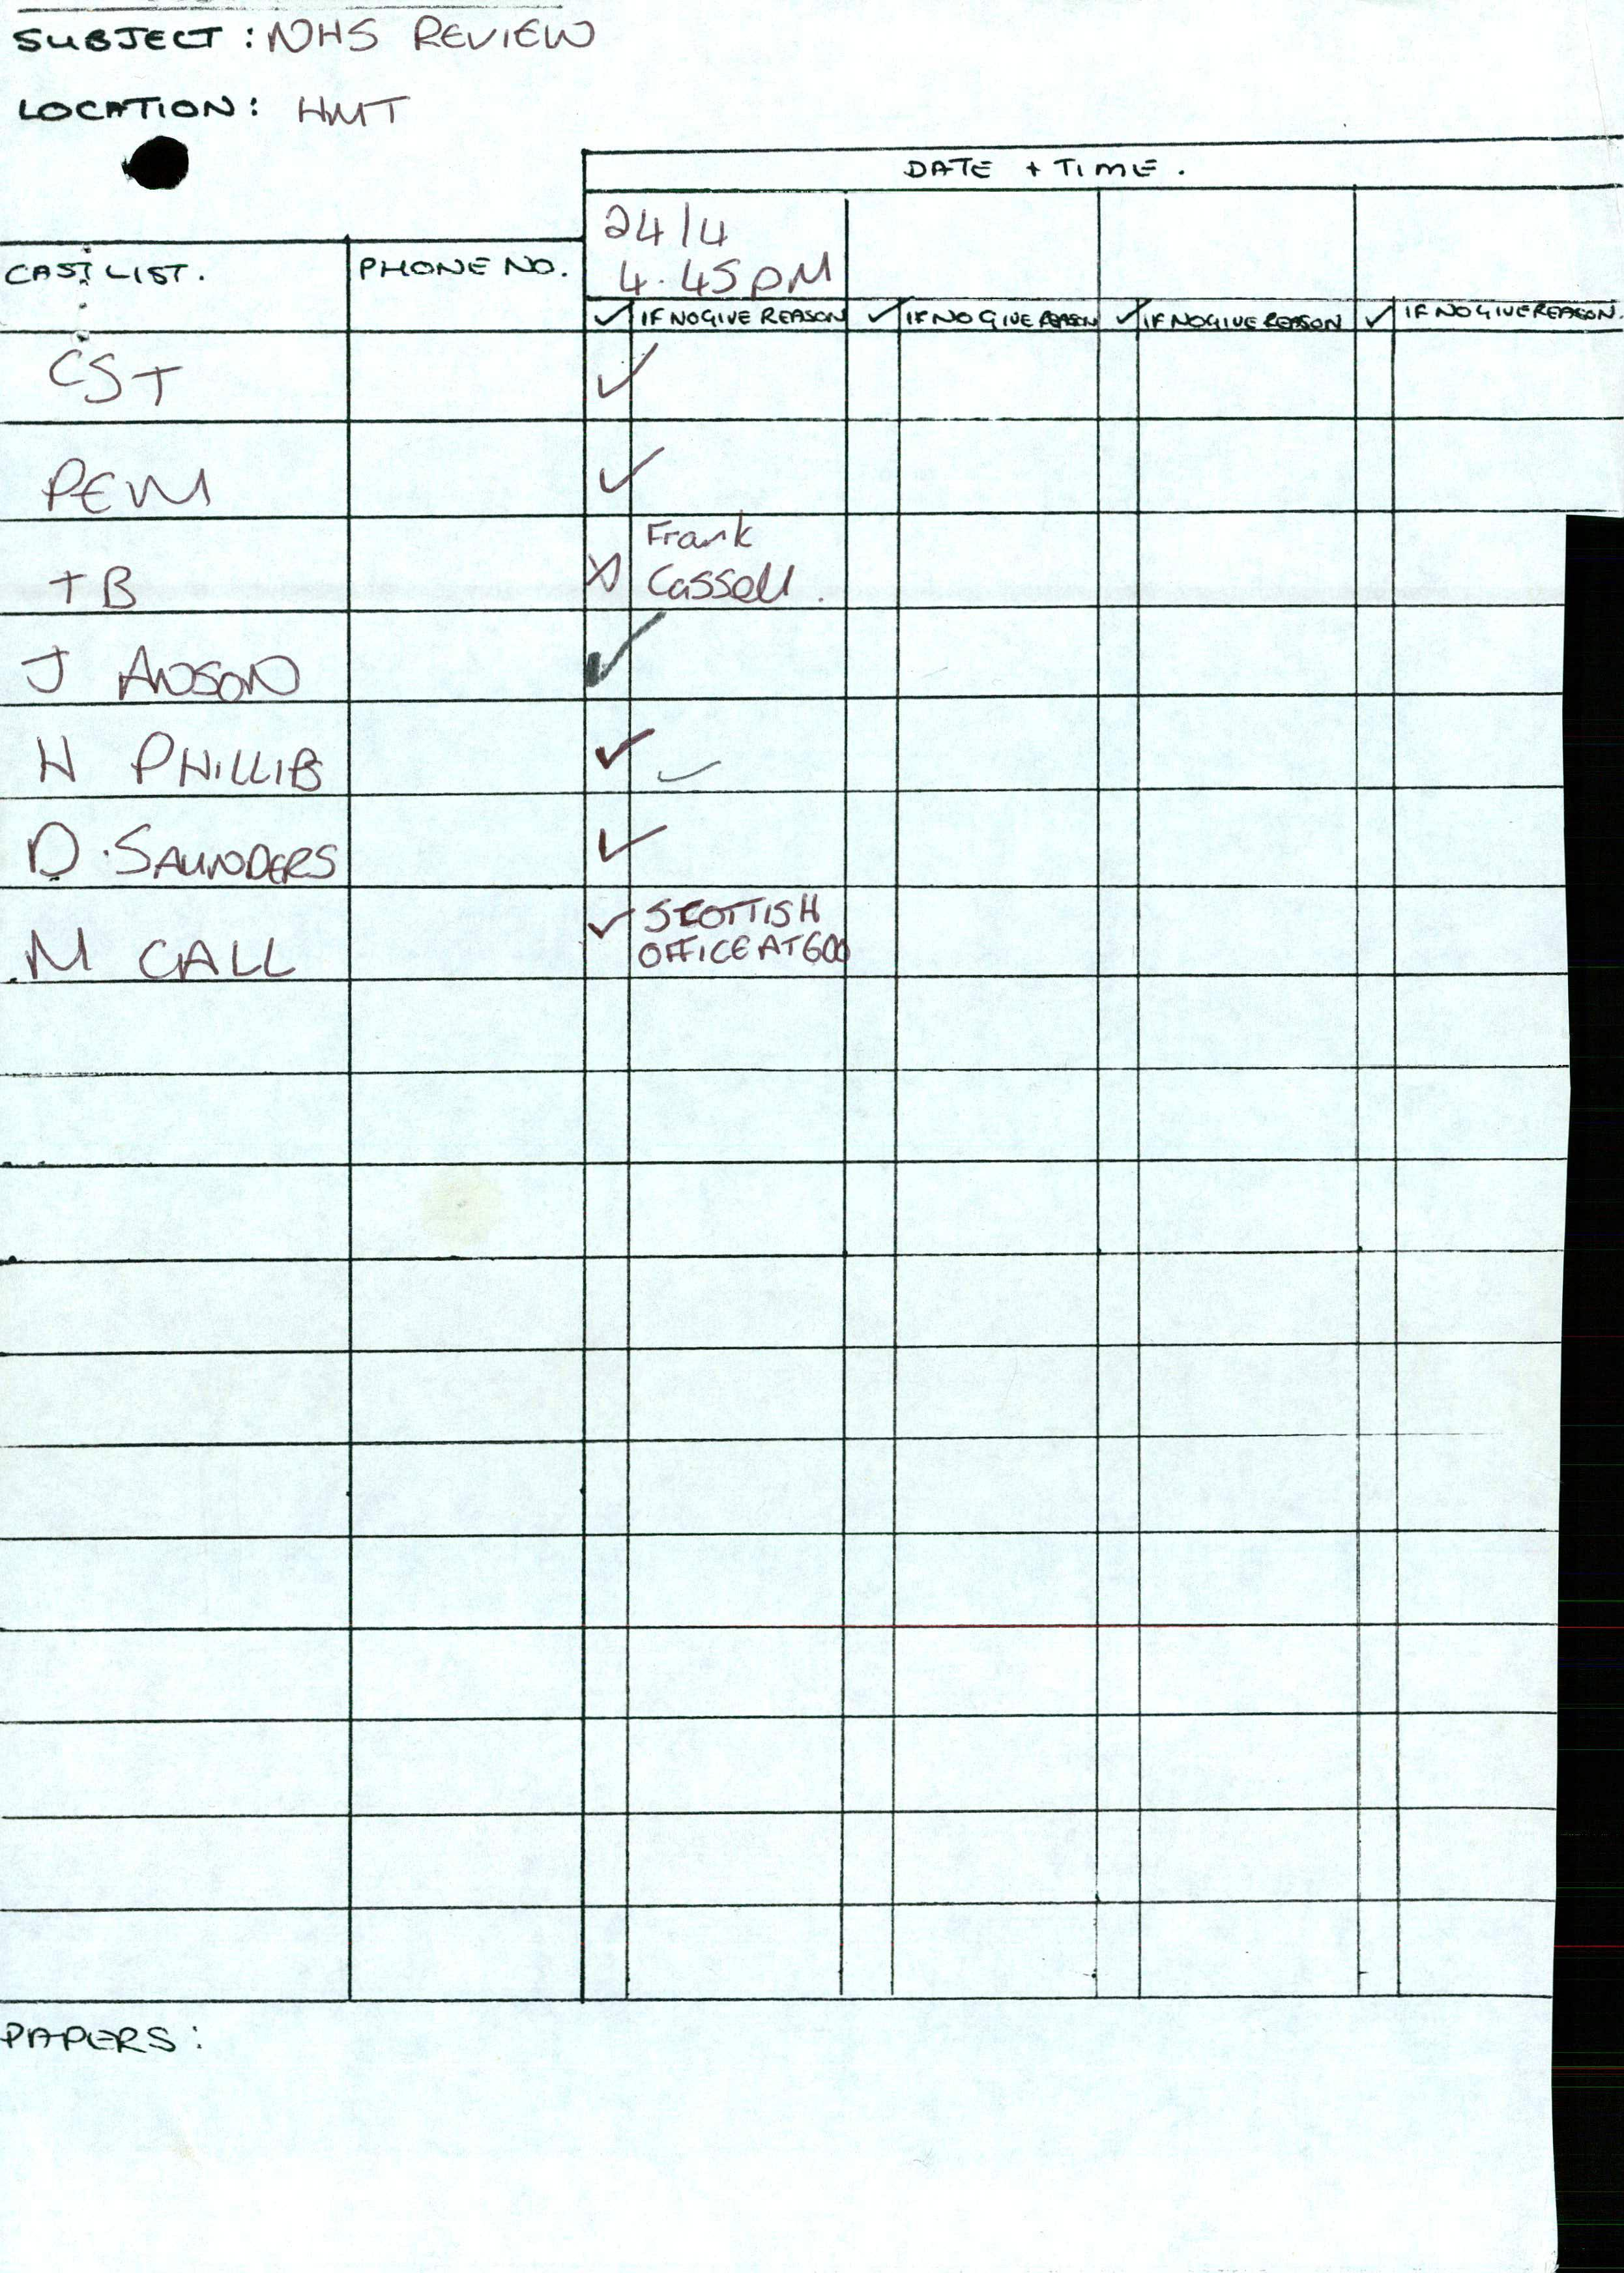 SUBJECT: NHS REVIEW
LOCATION: HMT
DATE + TIME.
24/4
4.45PM
CAST LIST. PHONE NO.
✓ IF NO GIVE REASON ✓ IF NO GIVE REASON ✓ IF NO GIVE REASON ✓ IF NO GIVE REASON.
CST ✓
PEM ✓
TB X Frank
Cassell.
J ANSON ✓
H PHILLIPS ✓ ✓
D. SAUNDERS ✓
M CALL ✓ SCOTTISH
OFFICE AT 600
PAPERS: